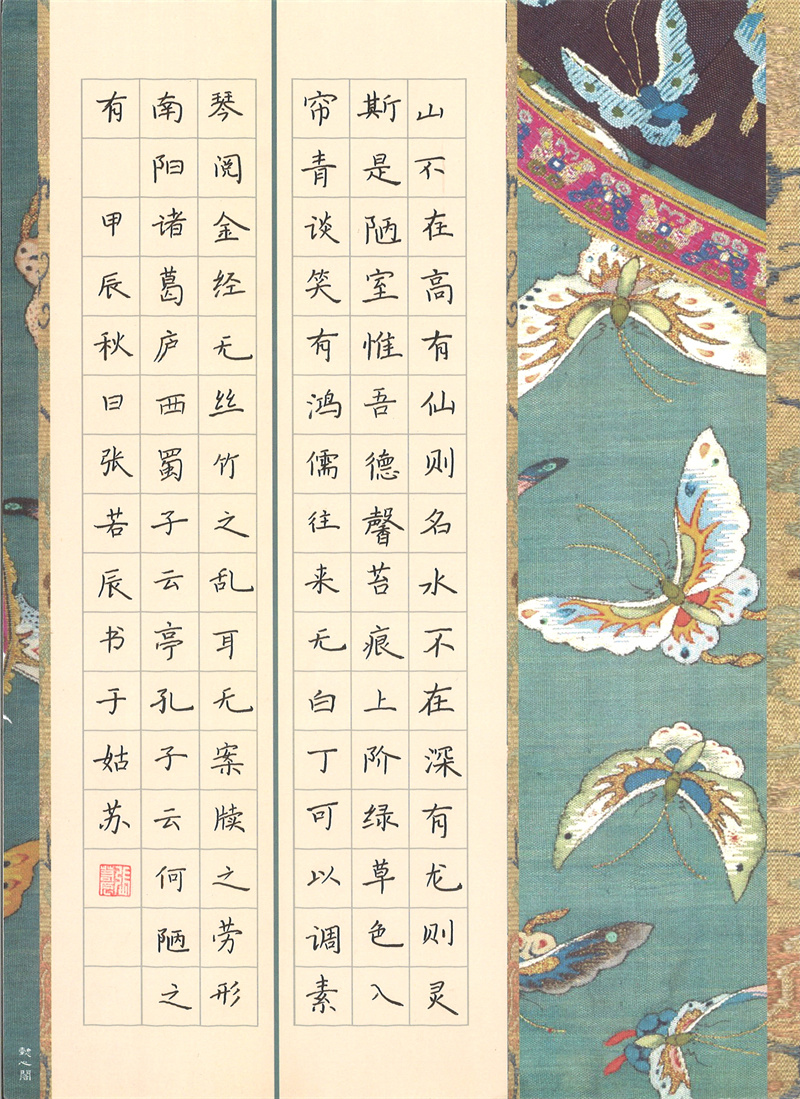 山不在高有仙则名水不在深有龙则灵
斯是陋室惟吾德馨苔痕上阶绿草色入
帘青谈笑有鸿儒往来无白丁可以调素
琴阅金经无丝竹之乱耳无案牍之劳形
南阳诸葛庐西蜀子云亭孔子云何陋之
有 甲辰秋日张若辰书于姑苏